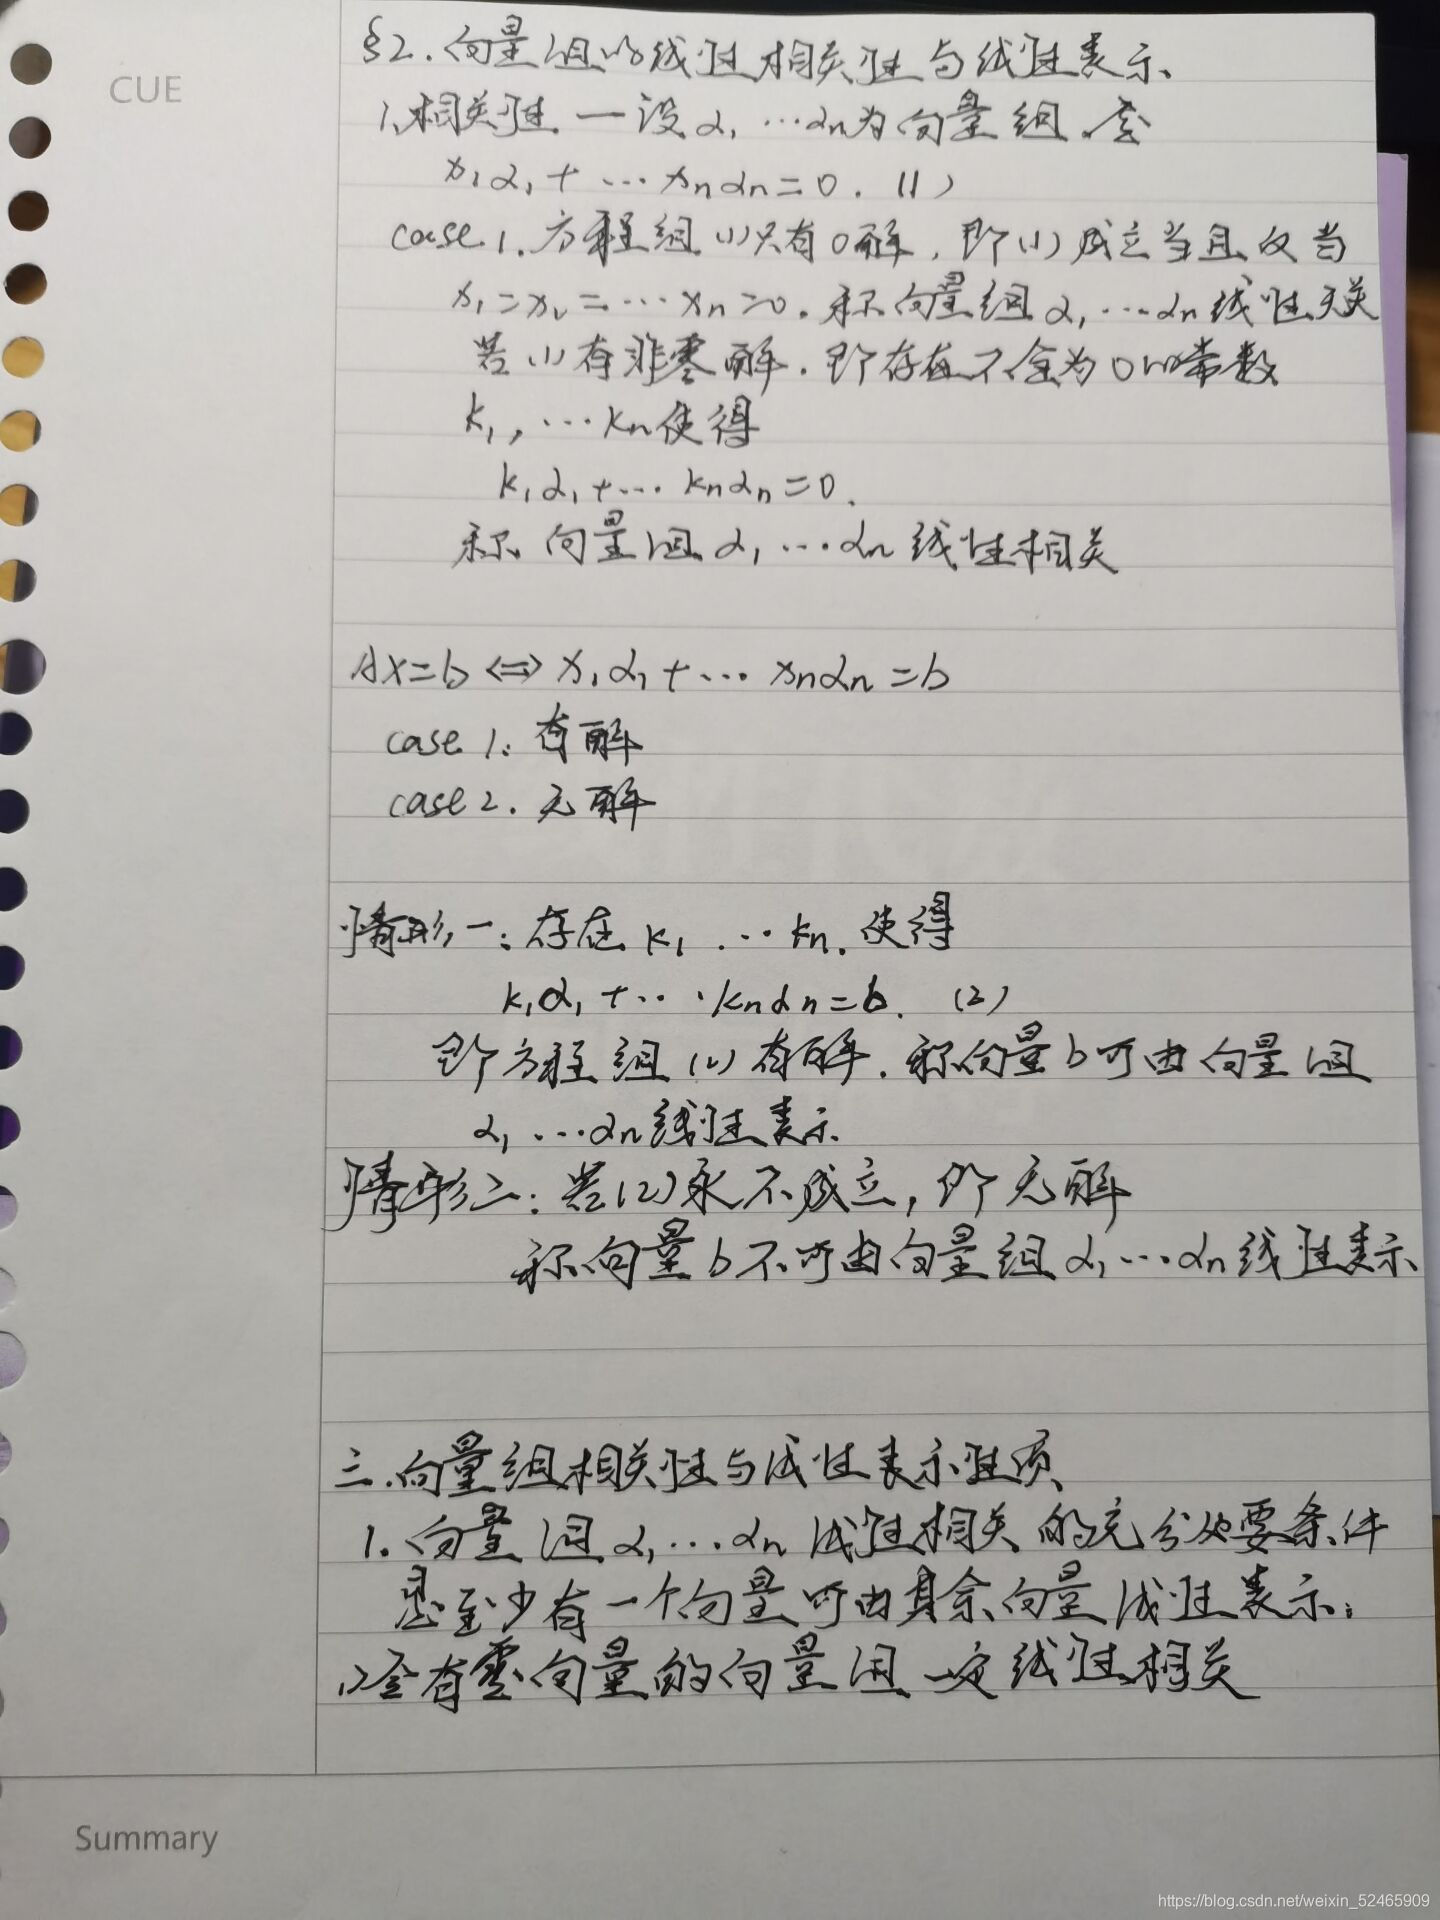 CUE
§2.向量组的线性相关性与线性表示、
1、相关性—设α₁…αₙ为向量组、令
x₁α₁+…xₙαₙ=0. (1)
case1.方程组(1)只有0解,即(1)成立当且仅当
x₁=x₂=…xₙ=0.称向量组α₁,…αₙ线性无关
若(1)有非零解.即存在不全为0的常数
k₁,…kₙ使得
k₁α₁+…kₙαₙ=0.
称向量组α₁…αₙ线性相关
AX=b⇔x₁α₁+…xₙαₙ=b
case1:有解
case2.无解
情形一:存在k₁…kₙ.使得
k₁α₁+…kₙαₙ=b. (2)
即方程组(2)有解.称向量b可由向量组
α₁…αₙ线性表示
情形二:若(2)永不成立,即无解
称向量b不可由向量组α₁…αₙ线性表示
三.向量组相关性与线性表示性质
1.向量组α₁…αₙ线性相关的充分必要条件
是至少有一个向量可由其余向量线性表示;
含有零向量的向量组一定线性相关
Summary
https://blog.csdn.net/weixin_52465909